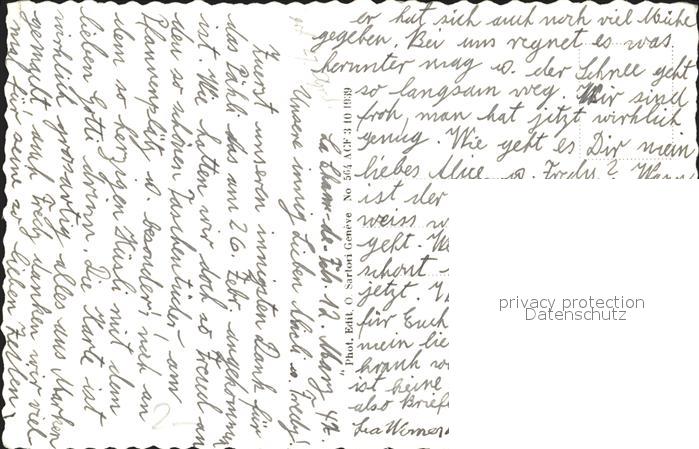 La Chaux-de-Fds. 12. März 42.
Unsere innig Lieben Alice u. Fredy!
Zuerst unseren innigsten Dank für
das Päckli das am 26. Febr. angekommen
ist. Wie hatten wir doch so Freud an
den so schönen Taschentücher - am
Pfannenplätz u. besonders noch an
dem so herzigen Hüsli mit dem
lieben Götti drinn. Die Karte ist
wirklich grossartig alles aus Marken
gemacht auch Fredy danken wir viel
mal für seine so lieben Zeilen,
er hat sich auch noch viel Mühe
gegeben. Bei uns regnet es was
herunter mag u. der Schnee geht
so langsam weg. Wir sind
froh, man hat jetzt wirklich
genug. Wie geht es Dir mein
liebes Alice u. Fredy?
ist der
weiss
geht.
schont
jetzt.
für Euch
mein lie
brauch
ist keine
also Brief
Lea Werner
Phot. Edit. O. Sartori Genève No 564 ACF 3 10 1939
privacy protection
Datenschutz